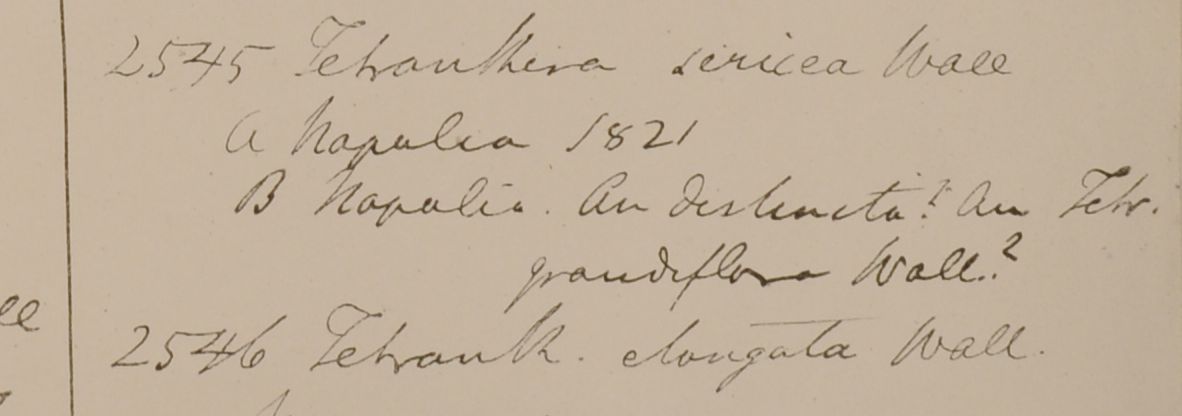 2545 Tetranthera sericea Wall
A Napalia 1821
B Napalia. An distincta? An Tetr.
grandiflora Wall.?
2546 Tetranth. elongata Wall.